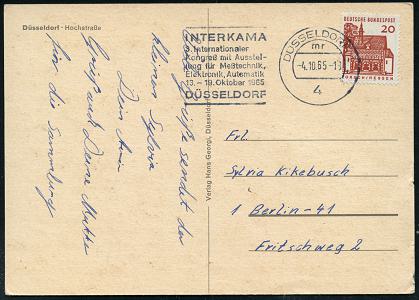 Düsseldorf - Hochstraße
INTERKAMA
3. Internationaler
Kongreß mit Ausstel-
lung für Meßtechnik,
Elektronik, Automatik
13. – 19. Oktober 1965
DÜSSELDORF
DÜSSELDORF
mr
-4.10.65-1
4
DEUTSCHE BUNDESPOST
20
LORSCH/HESSEN
Grüße sendet der
kleinen Sylvia
Dein
Gruß auch Deine Mutter
für die Sammlung
Verlag Hans Georgi, Düsseldorf
Frl.
Sylvia Kikebusch
1 Berlin-41
Fritschweg 2